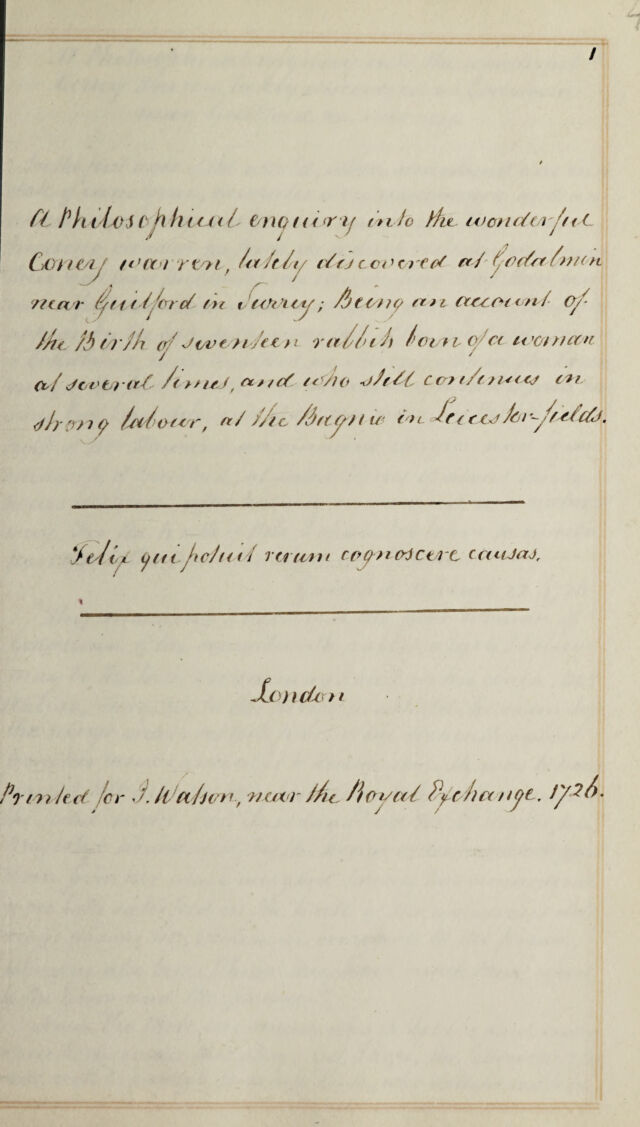 1
A Philosophical enquiry into the wonderful
Coney warren, lately discovered at Godalmin
near Guilford in Surrey; Being an account of
the Birth of seventeen rabbits born of a woman
at several times, and who still continues in
strong labour, at the Bagnio in Leicester-fields.
Felix qui potuit rerum cognoscere causas.
London
Printed for J. Watson, near the Royal Exchange. 1726.